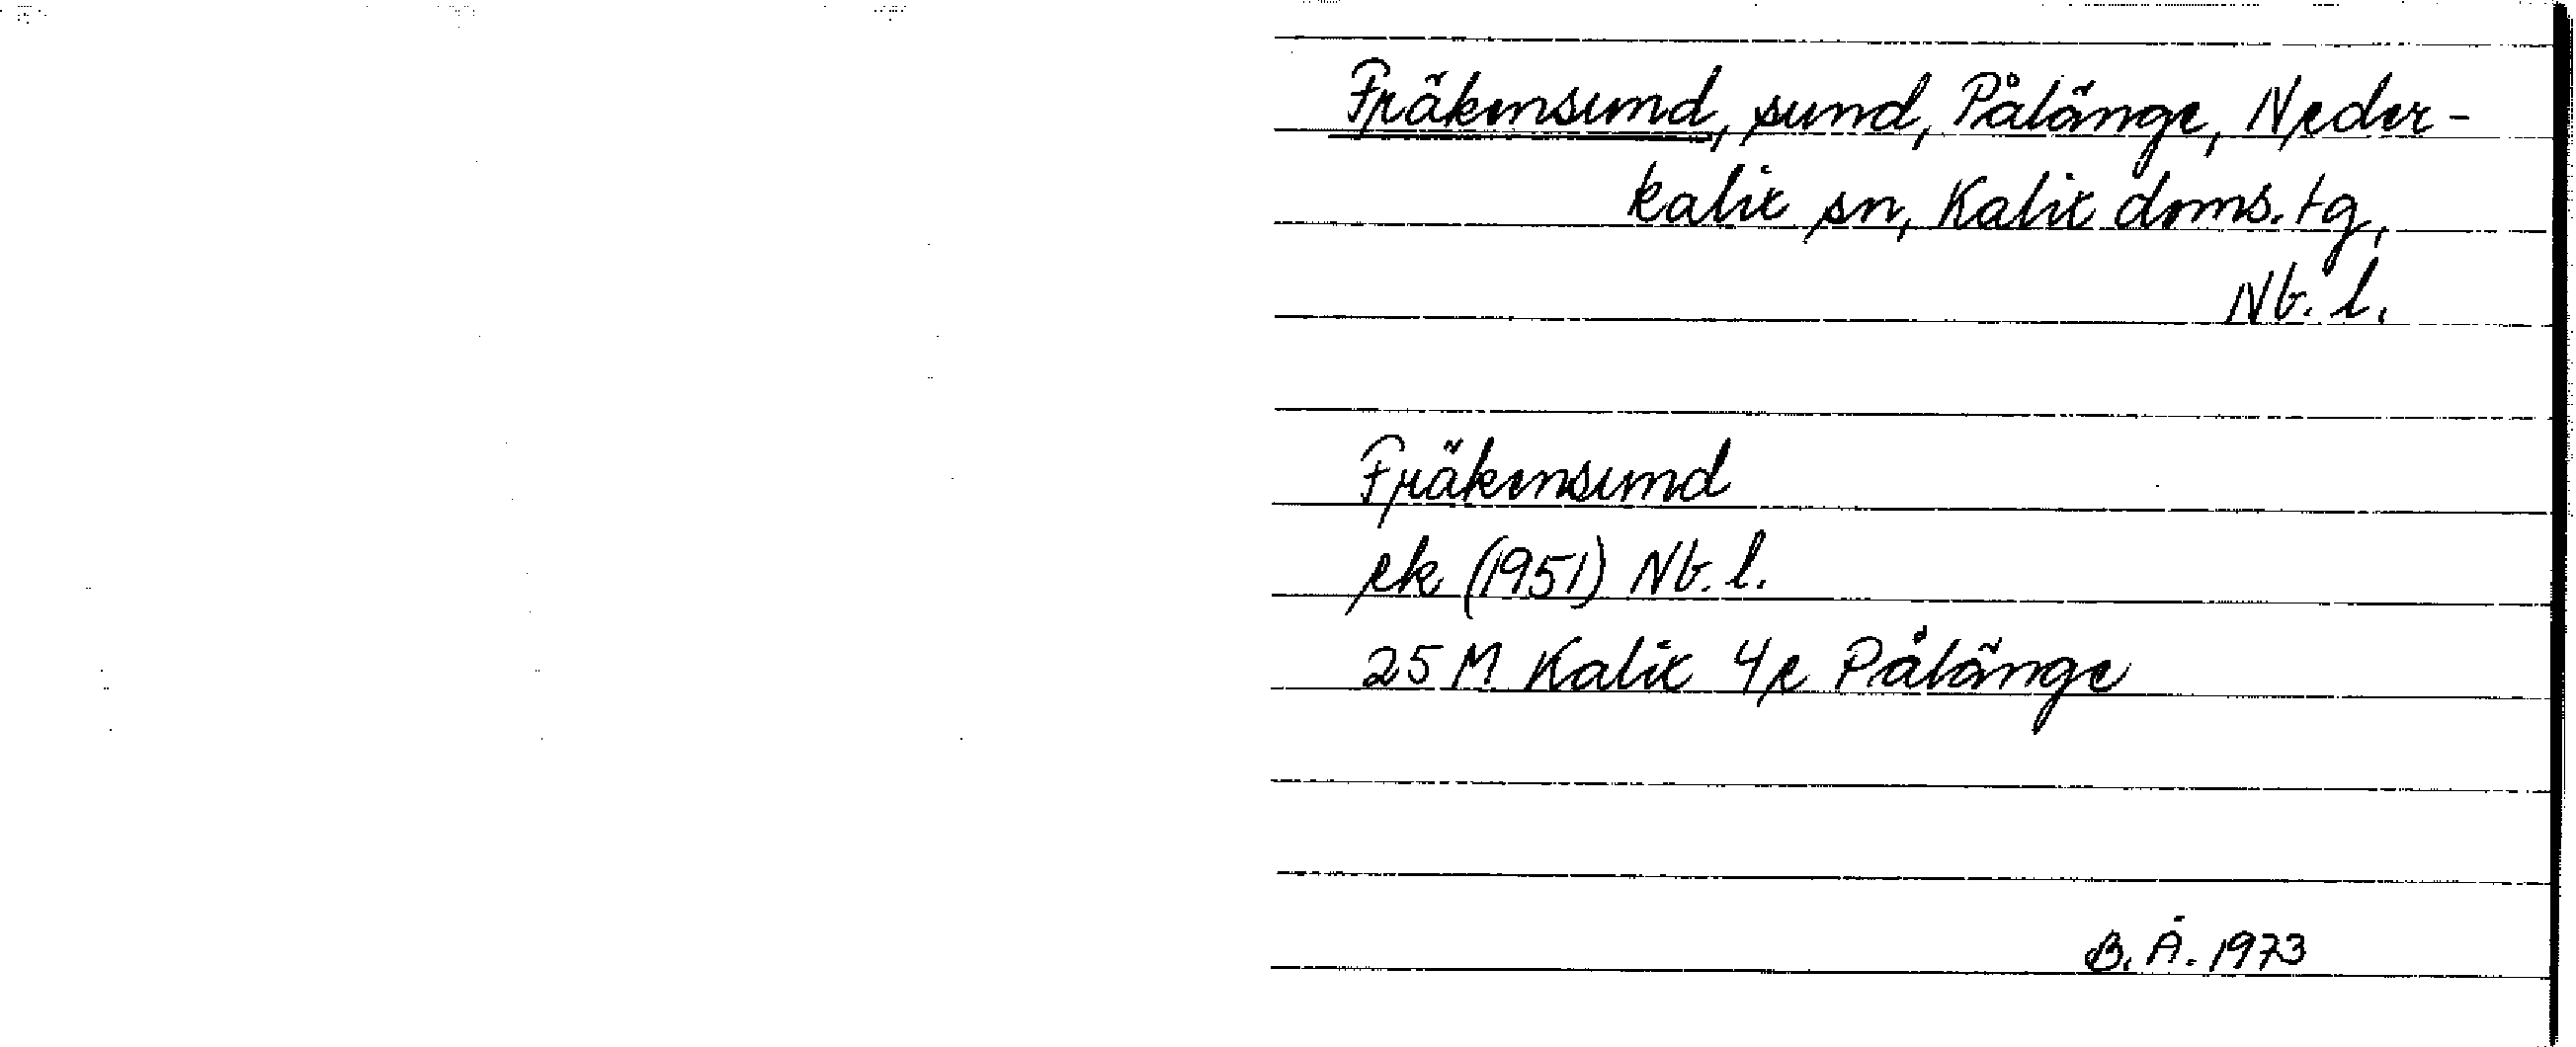 Fräkensund, sund, Pålänge, Neder-
kalix sn, Kalix doms. tg,
Nb. l.
Fräkensund
ek (1951) Nb. l.
25 M Kalix 4e Pålänge
B. Å. 1973